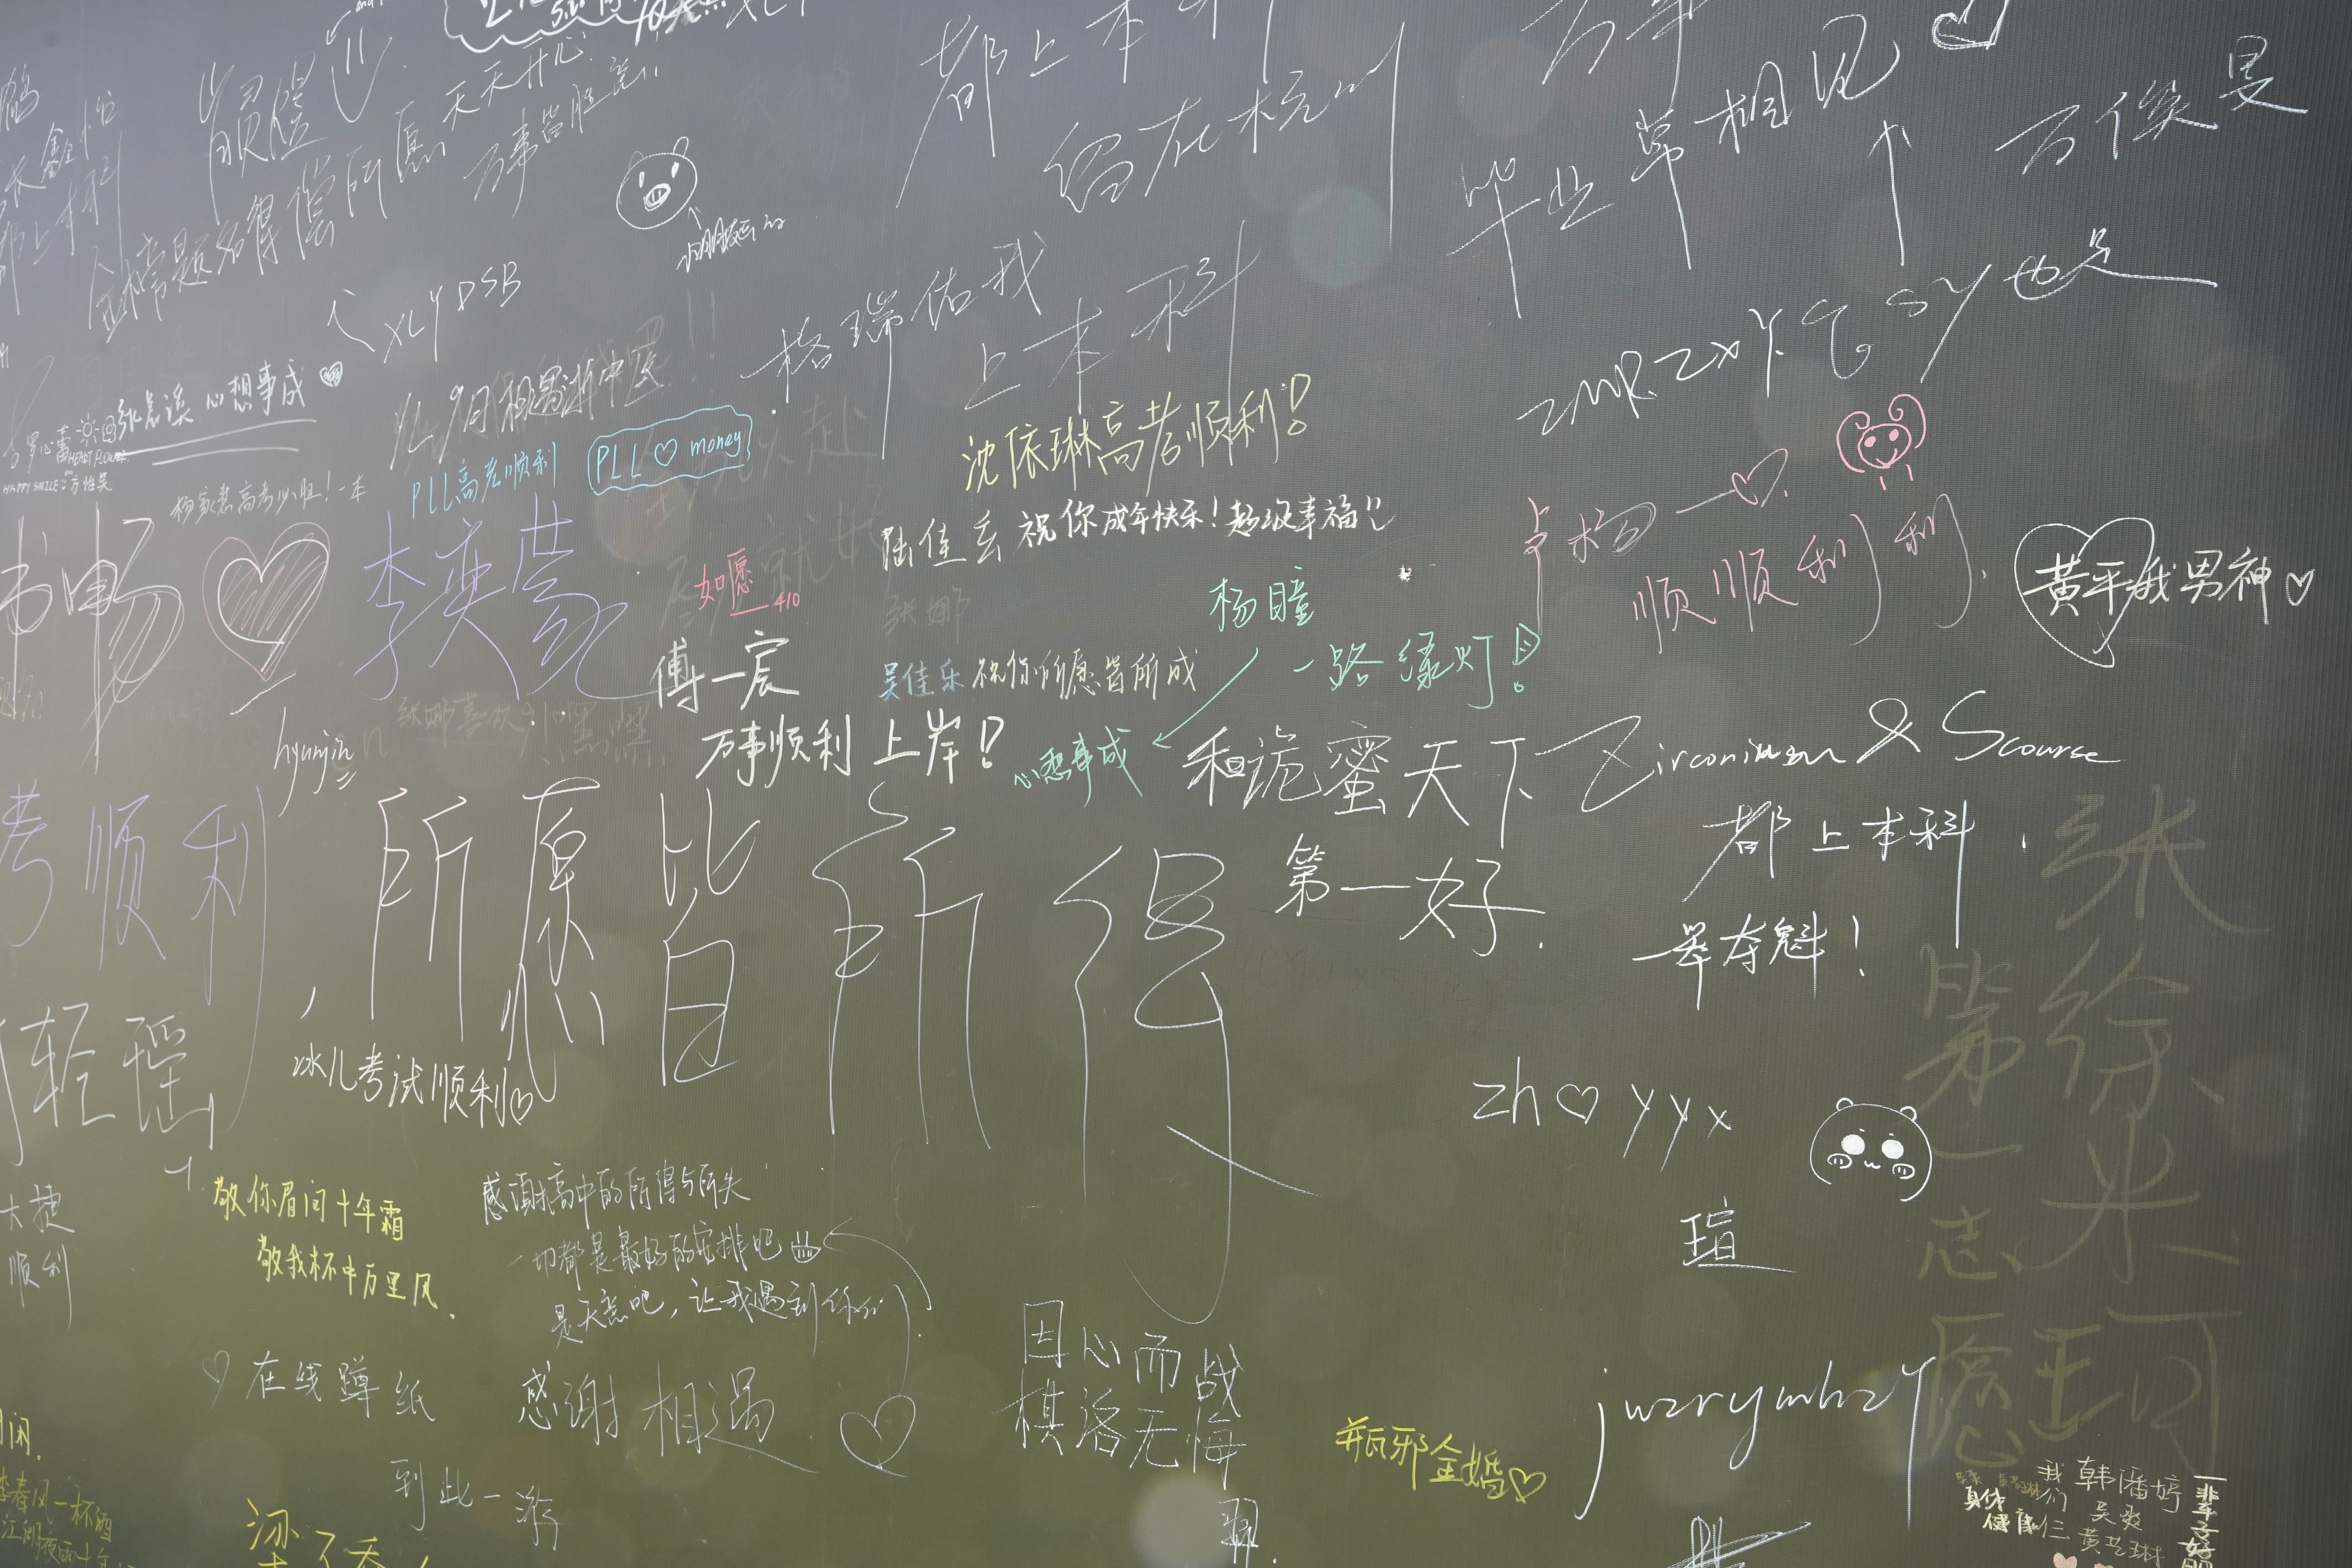 都上本科
留在杭州
毕业草相见
万俟昊
天天开心
万事皆胜意
金榜题名得偿所愿
XLYDSB
格瑞佑我
上本科
心想事成
9月相遇浙中医
PLL高考顺利
PLL♡money
沈依琳高考顺利!
HAPPY SMILE
高考必胜!一本
李奕莹
如愿
410
祝你成年快乐!超级幸福!!
顺顺利利
黄平我男神♡
杨瞳
一路绿灯!
心想事成
傅一宸
万事顺利 上岸!
吴佳乐祝你所愿皆所成
hyunjin
和诡蜜天下
第一好.
Zirconium & Scourse
都上本科
一举夺魁!
考顺利,
所愿皆所得
冰儿考试顺利
zh♡yyx
瑄
张徐来
第一志愿
大捷
顺利
敬你眉间十年霜
敬我杯中万里风.
感谢高中的所得与所失
一切都是最好的安排吧
是天意吧,让我遇到你们
♡在线蹲纸
感谢相遇
到此一游
因心而战
棋落无悔
瓶邪金婚♡
jwzrymhzy
春风一杯酒
江湖夜雨十年
身体
健康
我们仨
韩潘婷
吴爽
黄艺琳